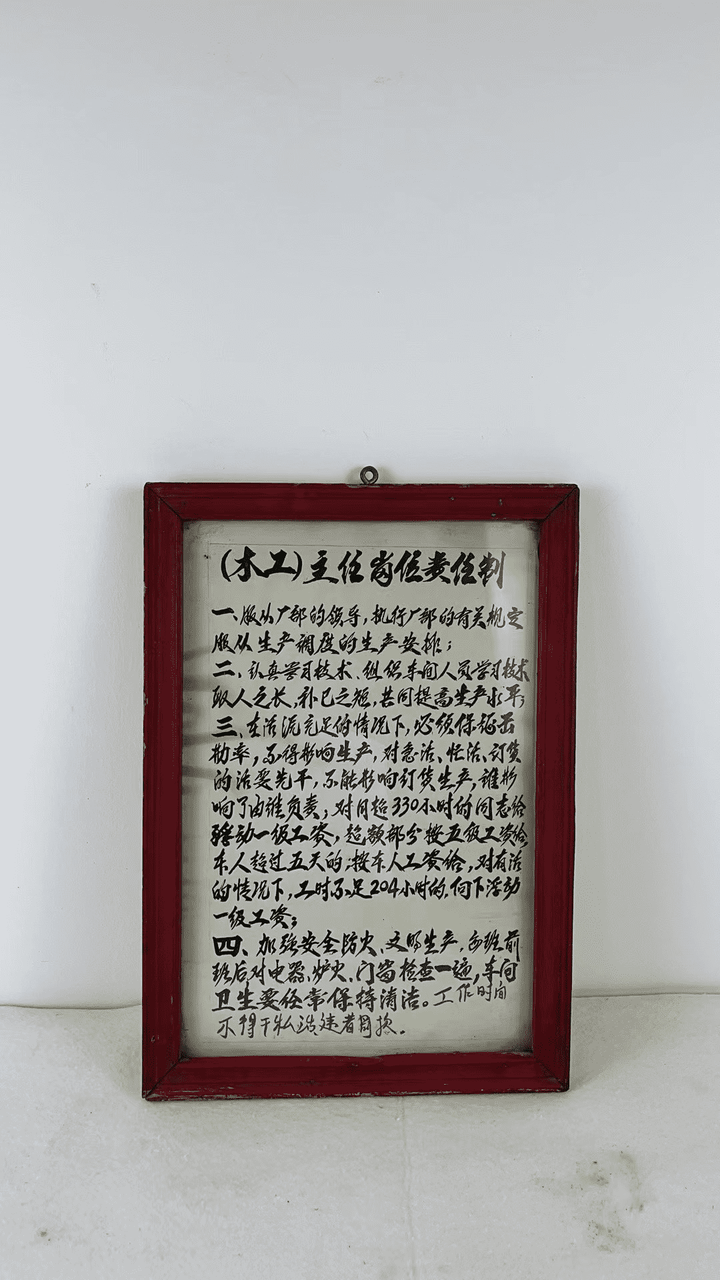 (木工)主任岗位责任制
一、服从厂部的领导,执行厂部的有关规定
服从生产调度的生产安排;
二、认真学习技术、组织车间人员学习技术
取人之长,补己之短,共同提高生产水平;
三、在活流充足的情况下,必须保证出
勤率,不得影响生产,对急活、忙活、订货
的活要先干,不能影响订货生产,谁影
响了由谁负责,对月超330小时的同志给
浮动一级工资,超额部分按五级工资给,
本人超过五天的:按本人工资给,对有活
的情况下,工时不足204小时的,向下浮动
一级工资;
四、加强安全防火、文明生产,每班前
班后对电器、炉火、门窗检查一遍,车间
卫生要经常保持清洁。工作时间
不得干私活违者罚款.